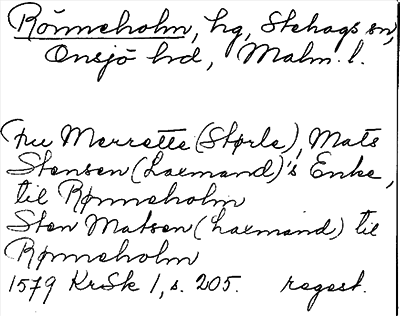 Rönneholm, hg, Stehags sn,
Onsjö hrd, Malm. l.
Fru Merrette (Størle), Mats
Stensen (Laxmand)'s Enke,
til Rønneholm
Sten Matsen (Laxmand) til
Rønneholm
1579 KrSk 1, s. 205. regest.